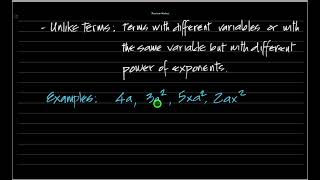 - Unlike Terms: Terms with different variables or with
the same variable but with different
power of exponents.
Examples: 4a, 3a², 5xa², 2ax²